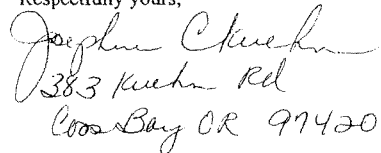 Respectfully yours,
Josephine C Kuehn
383 Kuehn Rd
Coos Bay OR 97420